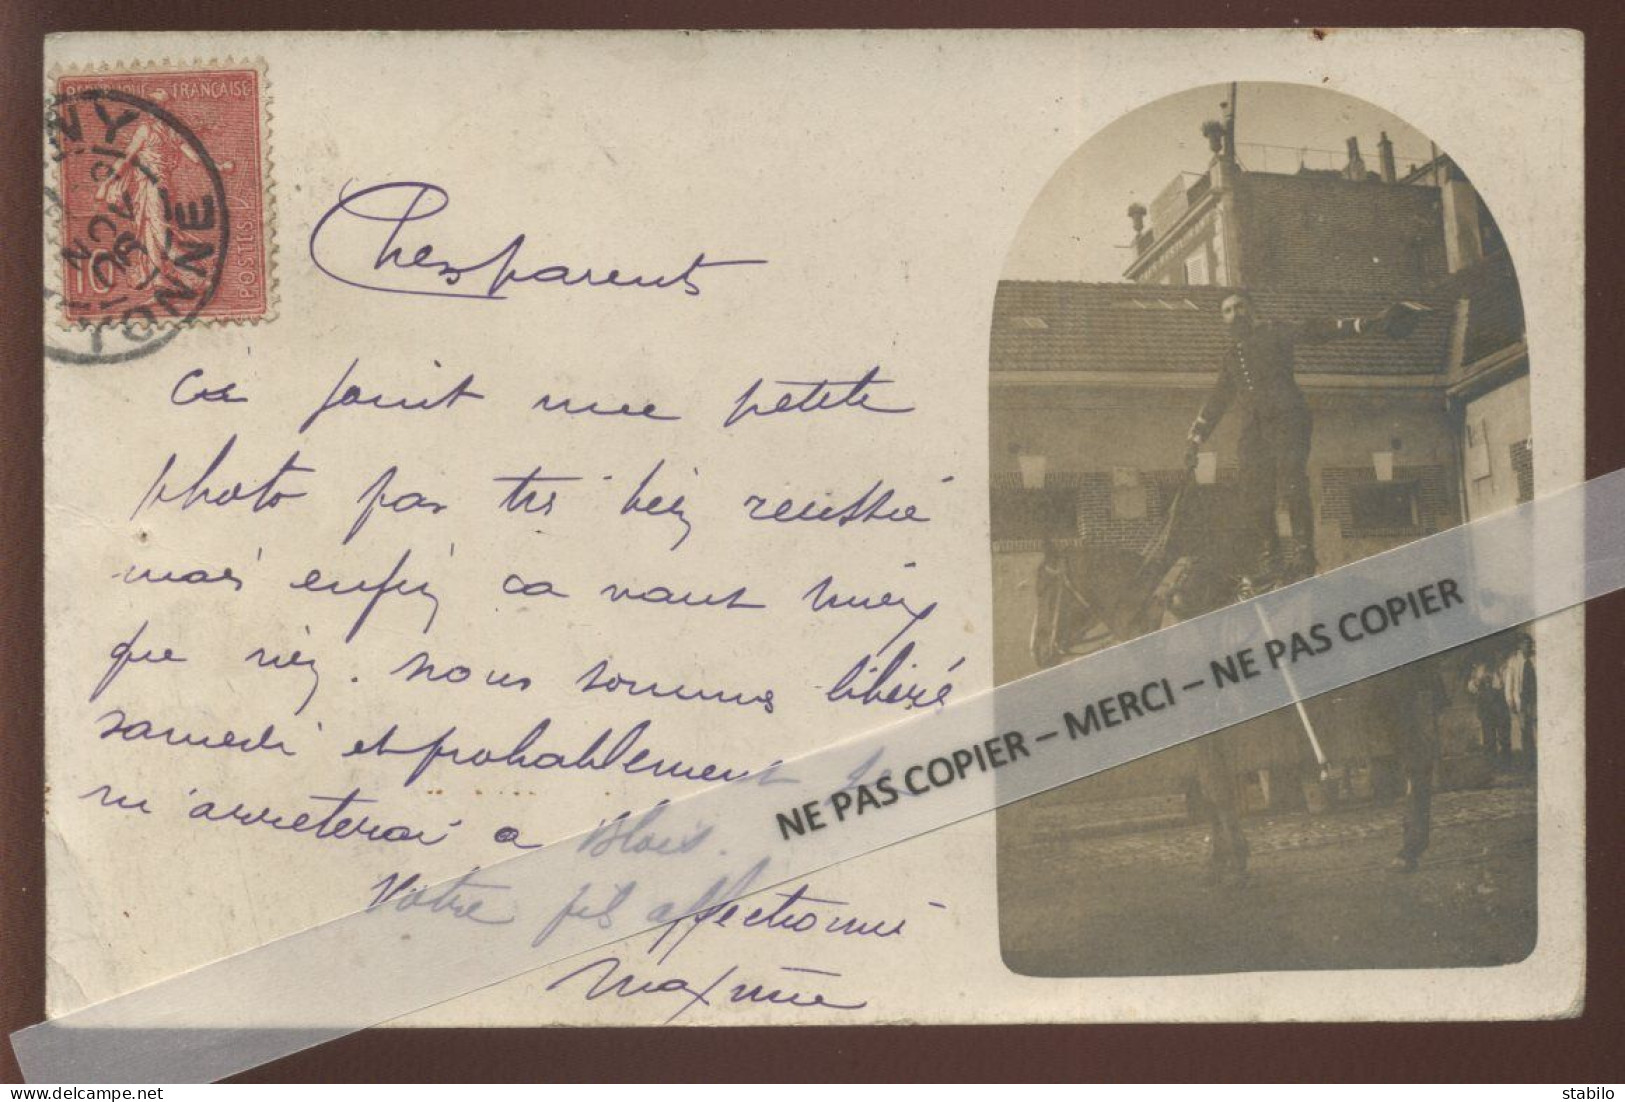 RÉPUBLIQUE FRANÇAISE
POSTES
10
NY
YONNE
Chers parents
ci joint une petite
photo pas très bien reussie
mais enfin ca vaut mieux
que rien. nous sommes libéré
samedi et probablement je
m'arreterai a Blois.
Votre fils affectionné
Maxime
NE PAS COPIER – MERCI – NE PAS COPIER
stabilo